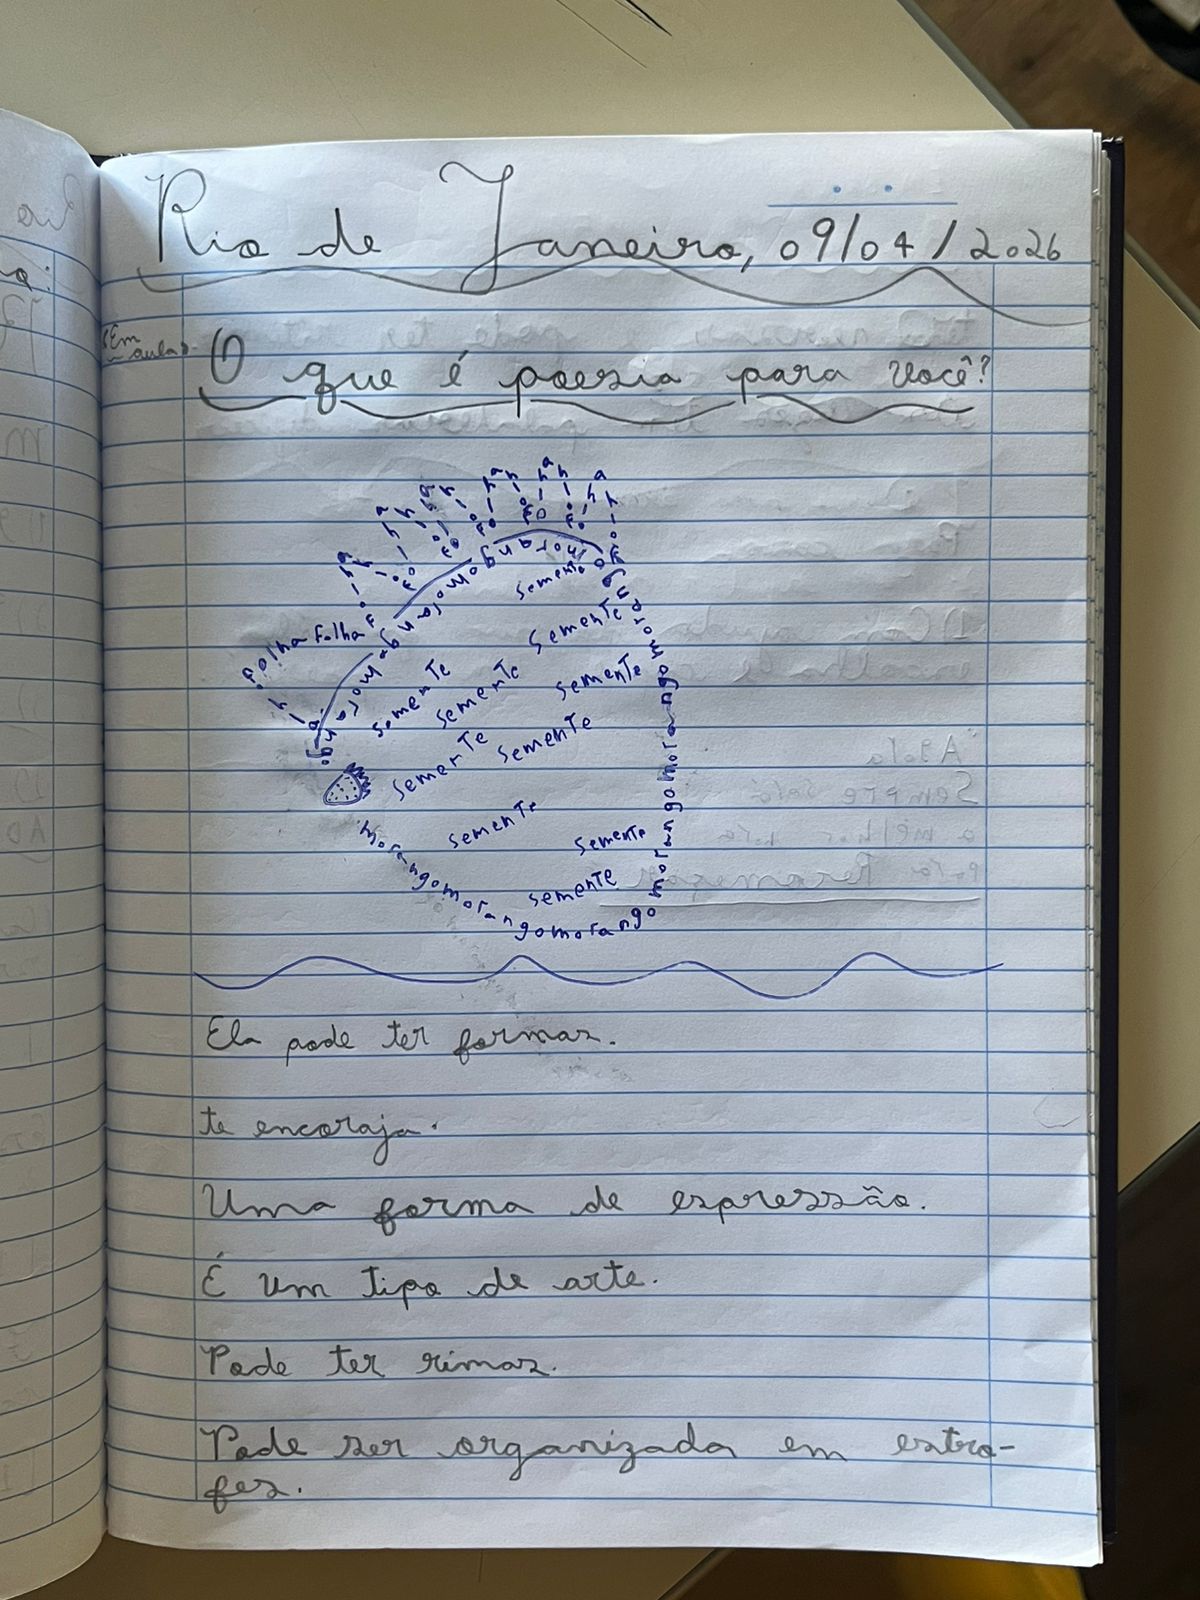 Rio de Janeiro, 09/04/2026
Em aula
O que é poesia para você?
folha folha folha folha folha folha folha folha folha folha folha folha
morangomorangomorangomorango
Semente
Semente
Semente
Semente
Semente
Semente
Semente
Semente
Semente
Semente
morangomorangomorangomorangomorangomorango
Ela pode ter formas.
te encoraja.
Uma forma de espressão.
É um tipo de arte.
Pode ter rimas.
Pode ser organizada em estro-
fes.